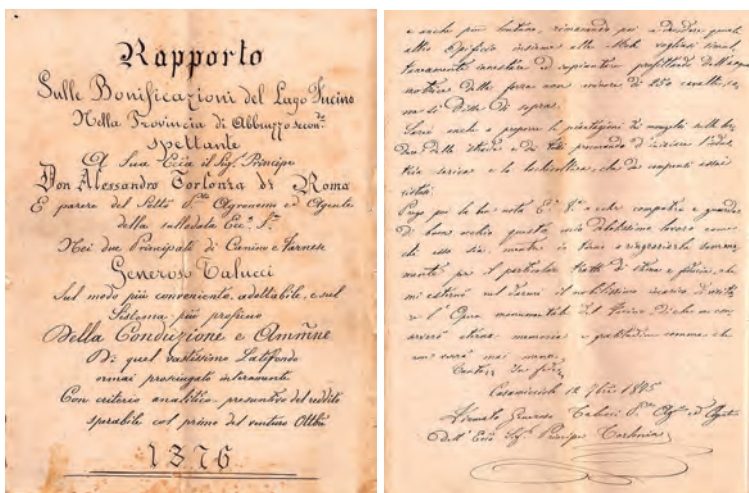 Rapporto
Sulle Bonificazioni del Lago Fucino
Nella Provincia di Abbruzzo second.
spettante
A Sua Ecc̃a il Sig.r Principe
Don Alessandro Torlonia di Roma
E parere del Perito Agronomo ed Agente
della sullodata Ecc.a S.a
Nei due Principati di Canino e Farnese
Generoso Talucci
Sul modo più conveniente, adottabile, e sul
Sistema più proficuo
Della Conduzione e Amm̃ne
Di quel vastissimo Latifondo
ormai prosciugato interamente
Con criterio analitico-presuntivo del reddito
sperabile col primo del venturo Ottb̃e
1876
e anche più lontane, rimanendo poi a decidere quale
altro Opificio insieme alle vogliasi simul,
taneamente innestare ed impiantare profittando dell'acqua
motrice della forza non minore di 250 cavalli, co,
me si disse di sopra.
Sarei anche a proporre le piantagioni di mongelsi sulle bor,
dure delle strade e dei procurando di iniziare l'indus,
tria serica e la che da compensi assai
vistosi.
Prego per la ben nota E.a V.a a voler compatire e guardare
di buon occhio questo mio debolissimo lavoro come,
chè esso sia, mentre io torno a ringraziarla somma,
mente per il particolar tratto di stima e fiducia, che
mi esternò col darmi il nobilissimo incarico di visita,
re l'Opera monumentale del Fucino, di che ne con,
serverò eterna memoria e gratitudine somma che
non verrà mai meno.
Tanto in fede
12 1875
Generoso Talucci ed Agente
dell' Ecc̃a Sig.r Principe Torlonia